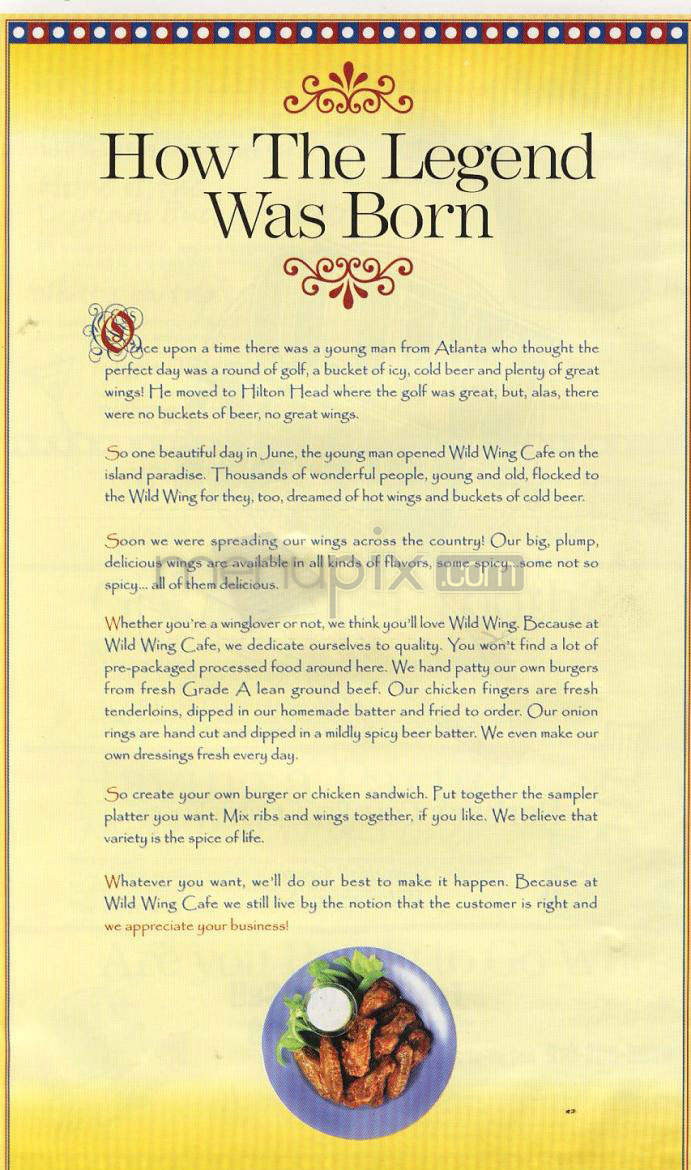 How The Legend
Was Born
Once upon a time there was a young man from Atlanta who thought the
perfect day was a round of golf, a bucket of icy, cold beer and plenty of great
wings! He moved to Hilton Head where the golf was great, but, alas, there
were no buckets of beer, no great wings.
So one beautiful day in June, the young man opened Wild Wing Cafe on the
island paradise. Thousands of wonderful people, young and old, flocked to
the Wild Wing for they, too, dreamed of hot wings and buckets of cold beer.
Soon we were spreading our wings across the country! Our big, plump,
delicious wings are available in all kinds of flavors, some spicy...some not so
spicy... all of them delicious.
menupix.com
Whether you're a winglover or not, we think you'll love Wild Wing. Because at
Wild Wing Cafe, we dedicate ourselves to quality. You won't find a lot of
pre-packaged processed food around here. We hand patty our own burgers
from fresh Grade A lean ground beef. Our chicken fingers are fresh
tenderloins, dipped in our homemade batter and fried to order. Our onion
rings are hand cut and dipped in a mildly spicy beer batter. We even make our
own dressings fresh every day.
So create your own burger or chicken sandwich. Put together the sampler
platter you want. Mix ribs and wings together, if you like. We believe that
variety is the spice of life.
Whatever you want, we'll do our best to make it happen. Because at
Wild Wing Cafe we still live by the notion that the customer is right and
we appreciate your business!